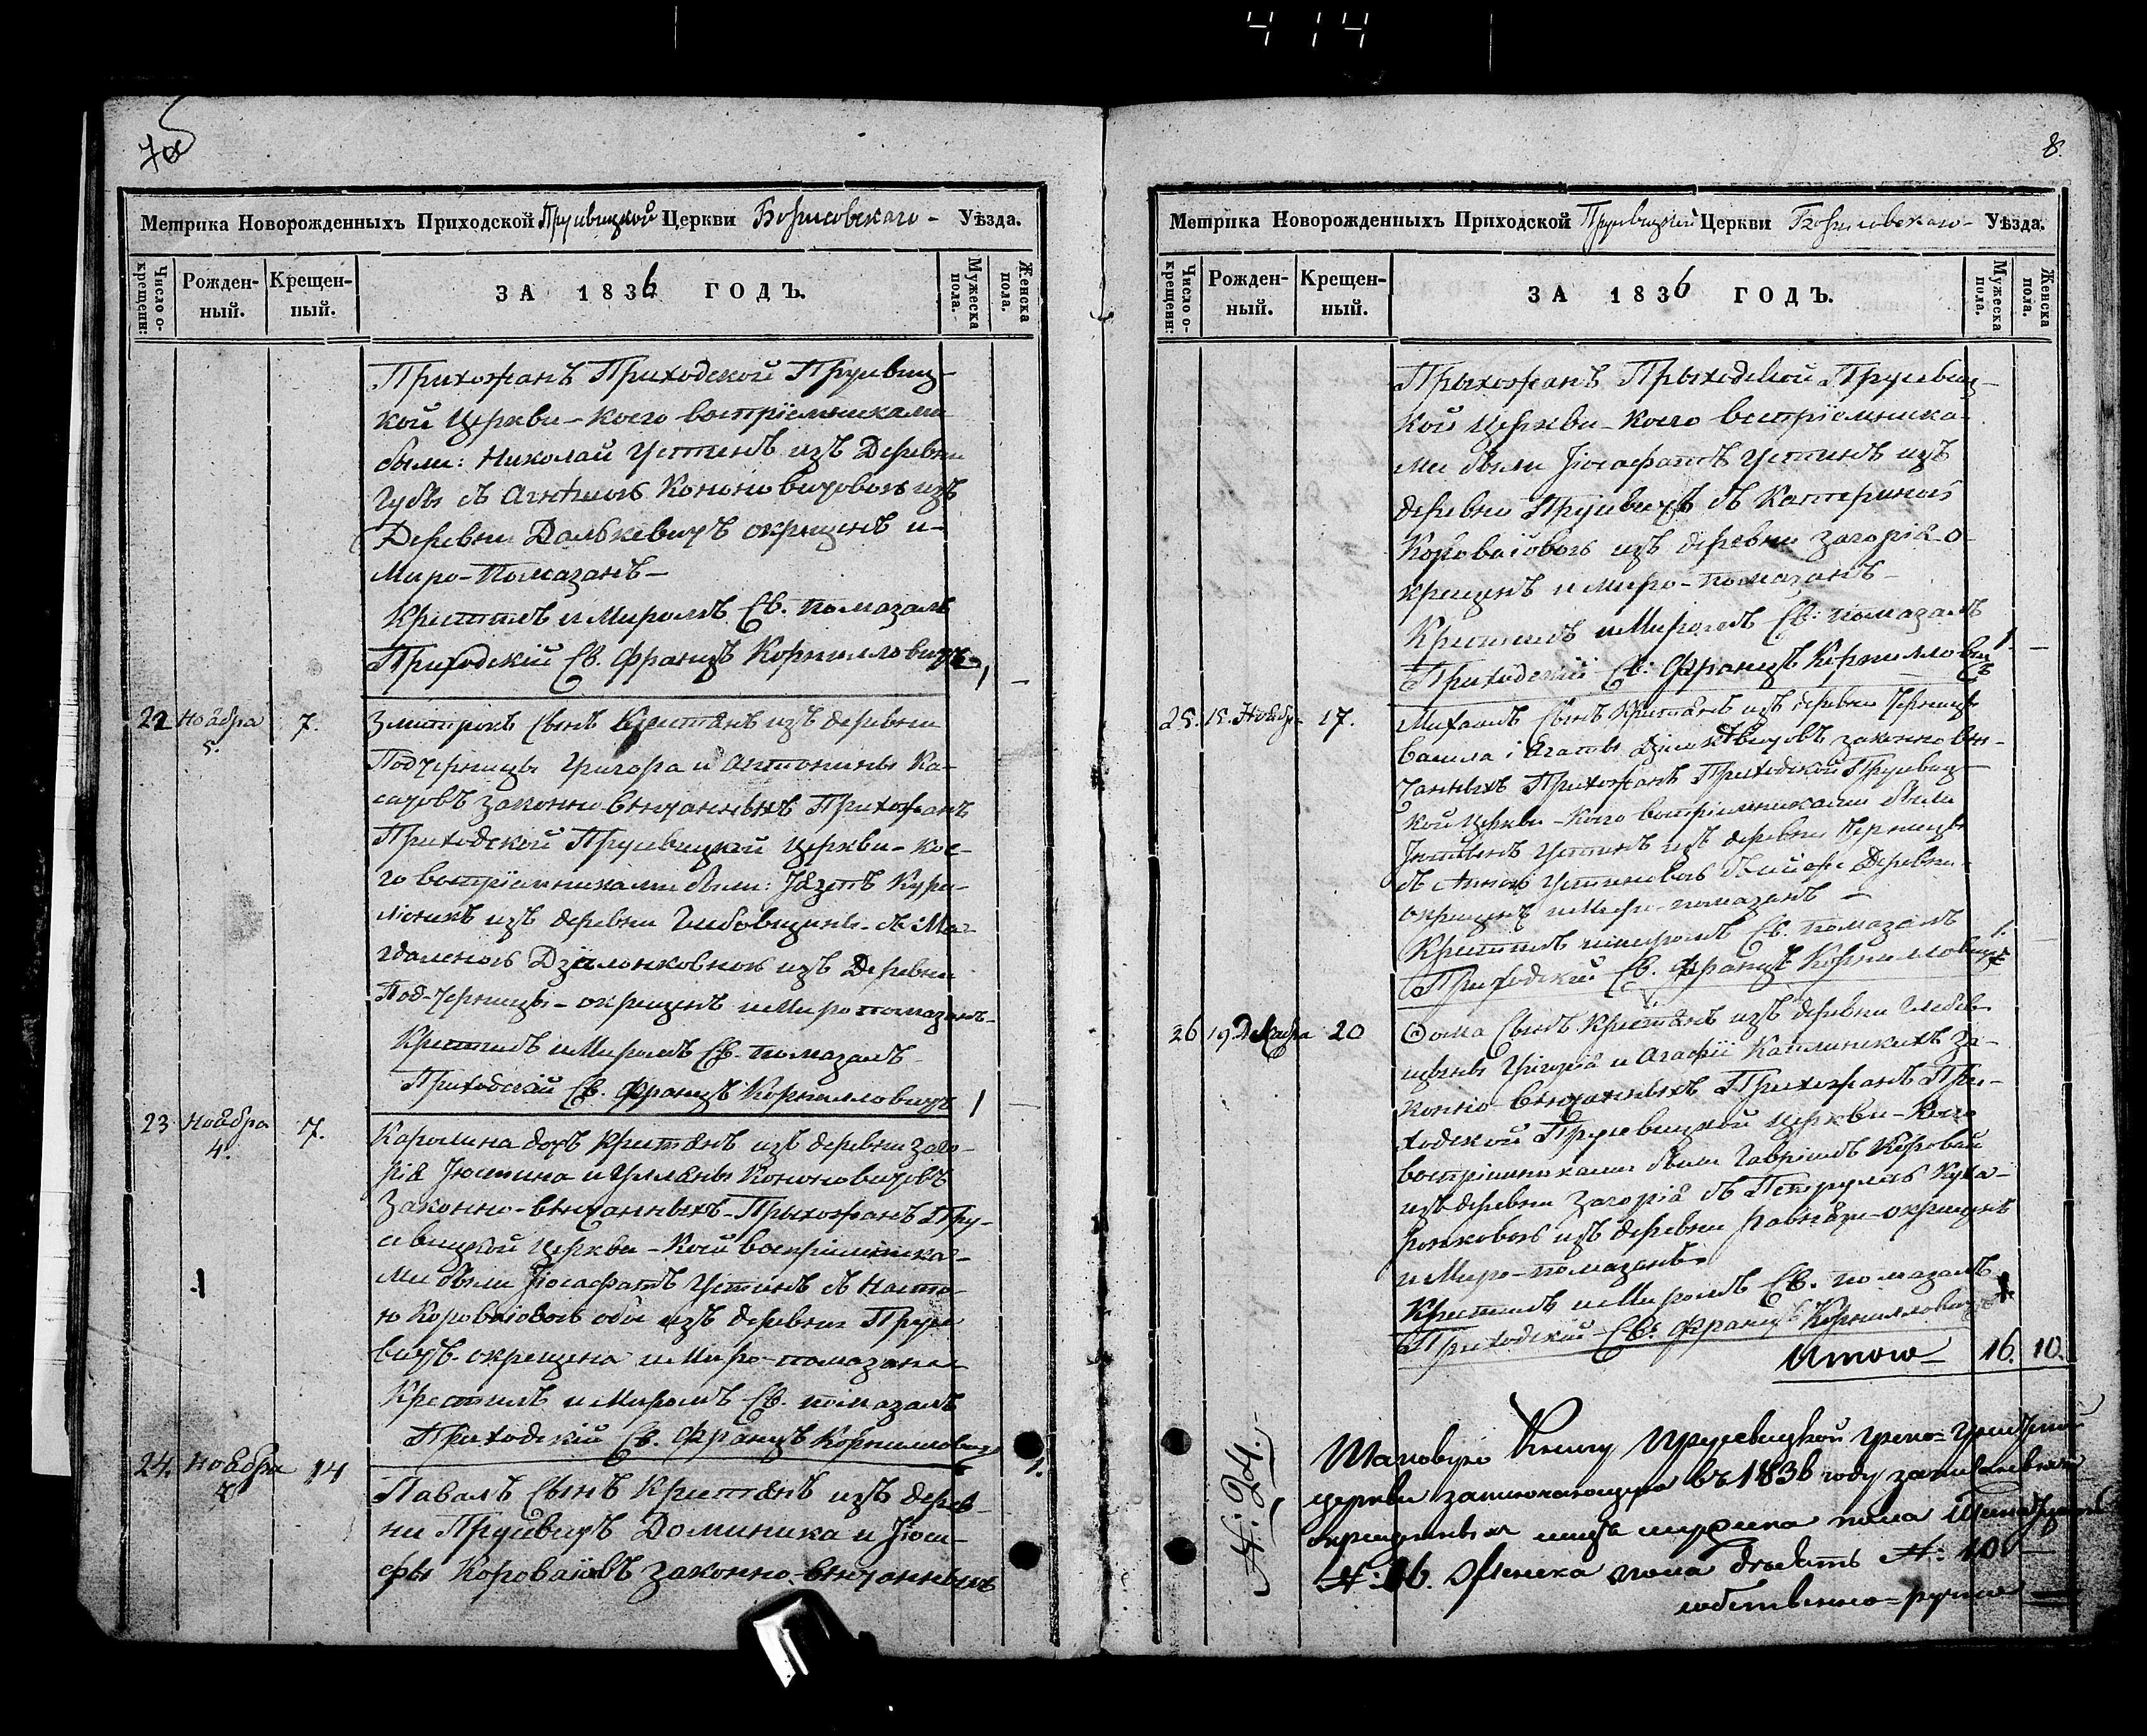 414
7об
Метрика Новорожденныхъ Приходской Прусевицкой Церкви Борисовскаго - Уѣзда.
Число о-
крещенн:
Рожден-
ный.
Крещен-
ный.
ЗА 1836 ГОДЪ.
Мужеска
пола.
Женска
пола.
Прихожанъ Приходской Прусевиц-
кой Церкви - коего воспріемниками
были: Николай Устинъ изъ Деревни
съ Кононовичовою изъ
Деревни Далькевичъ окрещенъ и
Миро-Помазанъ -
Крестилъ и Миромъ Св. помазалъ
Приходскій Св. Францъ Корниловичъ 1 -
22 Ноабра 5. 7. Змитрокъ Сынъ Крестанъ изъ деревни
Подчерницы Григора и Антонины Ка-
законно вѣнчанныхъ Прихожанъ
Приходской Прусевицкой церкви - кое-
го воспріемниками были: Іазепъ Кури-
изъ деревни съ Ма-
гдаленою Дзялонковною изъ Деревни
Под-черницы - окрещенъ и Миро помазанъ -
Крестилъ и Миромъ Св. помазалъ
Приходскій Св. Францъ Корниловичъ 1 -
23 Ноабра 4. 7. Каролина дочъ Крестанъ изъ деревни Заго-
ріа Іюстина и Улляны Кононовичовъ
Законно-вѣнчанныхъ - Прыхожанъ Пру-
севицкой церкви - коей воспріемника-
ми были Іосафатъ Устинъ съ Насто-
ю Короваіовою обое изъ деревни Прусе
вичъ - окрещена и Миро-помазана
Крестилъ и Миромъ Св. помазалъ
Приходскій Св. Францъ Корниловичъ 1.
24. Ноабра 14 Павалъ Сынъ Крестанъ изъ дерев-
ни Прусевичъ Доминика и Іозе-
фы Короваіовъ законно-вѣнчанныхъ
8.
Метрика Новорожденныхъ Приходской Прусевицкой Церкви Борисовскаго - Уѣзда.
Число о-
крещенн:
Рожден-
ный.
Крещен-
ный.
ЗА 1836 ГОДЪ.
Мужеска
пола.
Женска
пола.
Прыхожанъ Прыходской Прусевиц-
кой церкви - коего воспріемника-
ми были Іосафатъ Устинъ изъ
деревни Прусевичъ съ Катериною
Короваіовою изъ деревни Загоріа - о-
крещенъ и миро-помазанъ -
Крестилъ и Миромъ Св: помазалъ
Приходскій Св: Францъ Корниловичъ 1 -
25. 15. Ноабр. 17. Михаилъ Сынъ Крестанъ изъ деревни Черницы
Василя і Агаты законно вѣн-
чанныхъ Прихожанъ Приходской Прусевиц-
кой церкви - коего воспріемниками были
Устинъ изъ деревни Черницы
съ Анною Устиновою деревни -
окрещенъ и Миро-помазанъ -
Крестилъ и миромъ Св. помазалъ
Приходскій Св. Францъ Корниловичъ 1.
26 19. Декабра 20 Ѳома Сынъ Крестанъ изъ деревни Глебов-
щины Григоріа и Агафіи за-
конно-вѣнчанныхъ Прихожанъ При-
ходской Прусевицкой церкви - Коего
воспріемниками были Гавріилъ Коровай
изъ деревни Загоріа съ Петрулею Куха-
ронковою изъ деревни - окрещенъ
и Миро-помазанъ
Крестилъ и Миромъ Св. помазалъ
Приходскій Св. Францъ Корниловичъ 1
Итого - 16. 10.
Книгу Прусевицкой Греко-
церкви въ 1836 году
мужеска пола
№: 16. Женска пола десять №: 10
собственно-ручно
№: 24.